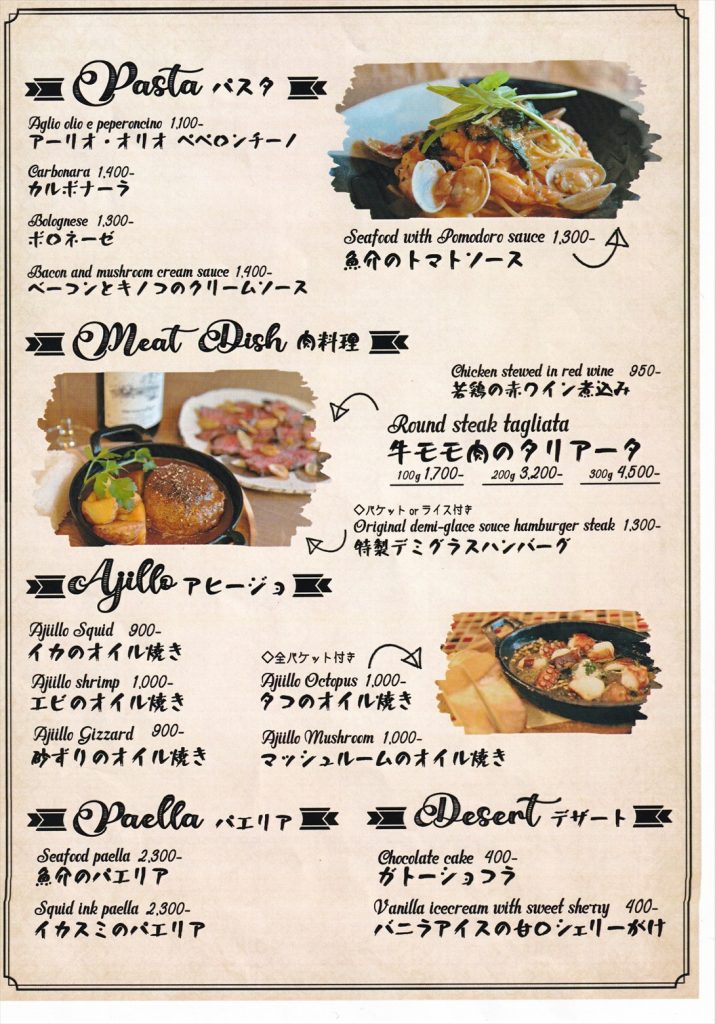 Pasta パスタ
Aglio olio e peperoncino 1,100-
アーリオ・オリオ ペペロンチーノ
Carbonara 1,400-
カルボナーラ
Bolognese 1,300-
ボロネーゼ
Bacon and mushroom cream sauce 1,400-
ベーコンとキノコのクリームソース
Seafood with Pomodoro sauce 1,300-
魚介のトマトソース
Meat Dish 肉料理
Chicken stewed in red wine 950-
若鶏の赤ワイン煮込み
Round steak tagliata
牛モモ肉のタリアータ
100g 1,700- 200g 3,200- 300g 4,500-
◇バケット or ライス付き
Original demi-glace souce hamburger steak 1,300-
特製デミグラスハンバーグ
Ajillo アヒージョ
Ajiillo Squid 900-
イカのオイル焼き
Ajiillo shrimp 1,000-
エビのオイル焼き
Ajiillo Gizzard 900-
砂ずりのオイル焼き
◇全バケット付き
Ajiillo Octopus 1,000-
タコのオイル焼き
Ajiillo Mushroom 1,000-
マッシュルームのオイル焼き
Paella パエリア
Seafood paella 2,300-
魚介のパエリア
Squid ink paella 2,300-
イカスミのパエリア
Desert デザート
Chocolate cake 400-
ガトーショコラ
Vanilla icecream with sweet sherry 400-
バニラアイスの甘口シェリーがけ